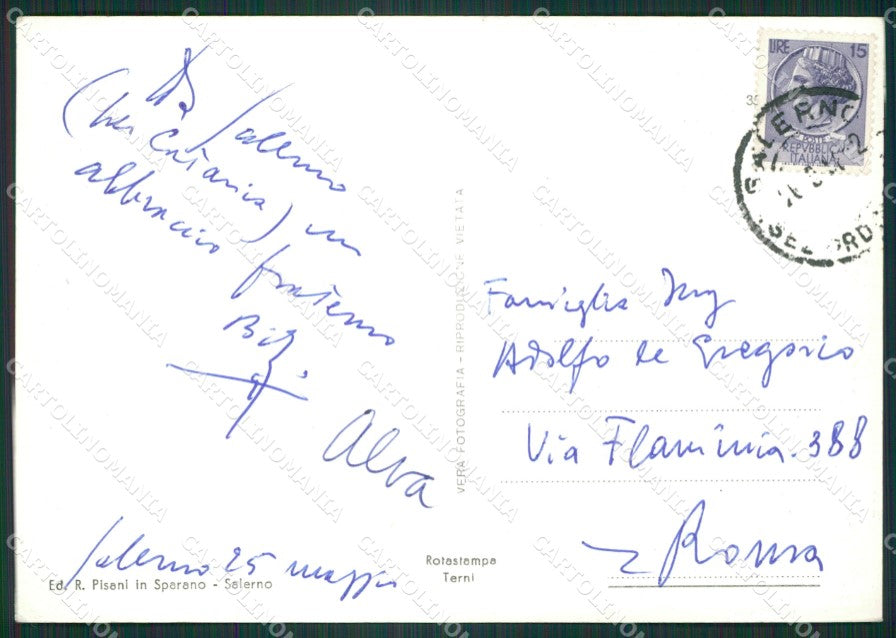 Da Salerno
(per Catania) un
abbraccio fraterno
Alva
Salerno 25 maggio
Ed. R. Pisani in Sparano - Salerno
Rotastampa
Terni
VERA FOTOGRAFIA - RIPRODUZIONE VIETATA
LIRE 15
REPVBBLICA
ITALIANA
SALERNO
Famiglia Ing
Adolfo de Gregorio
Via Flaminia. 388
Roma
CARTOLINOMANIA